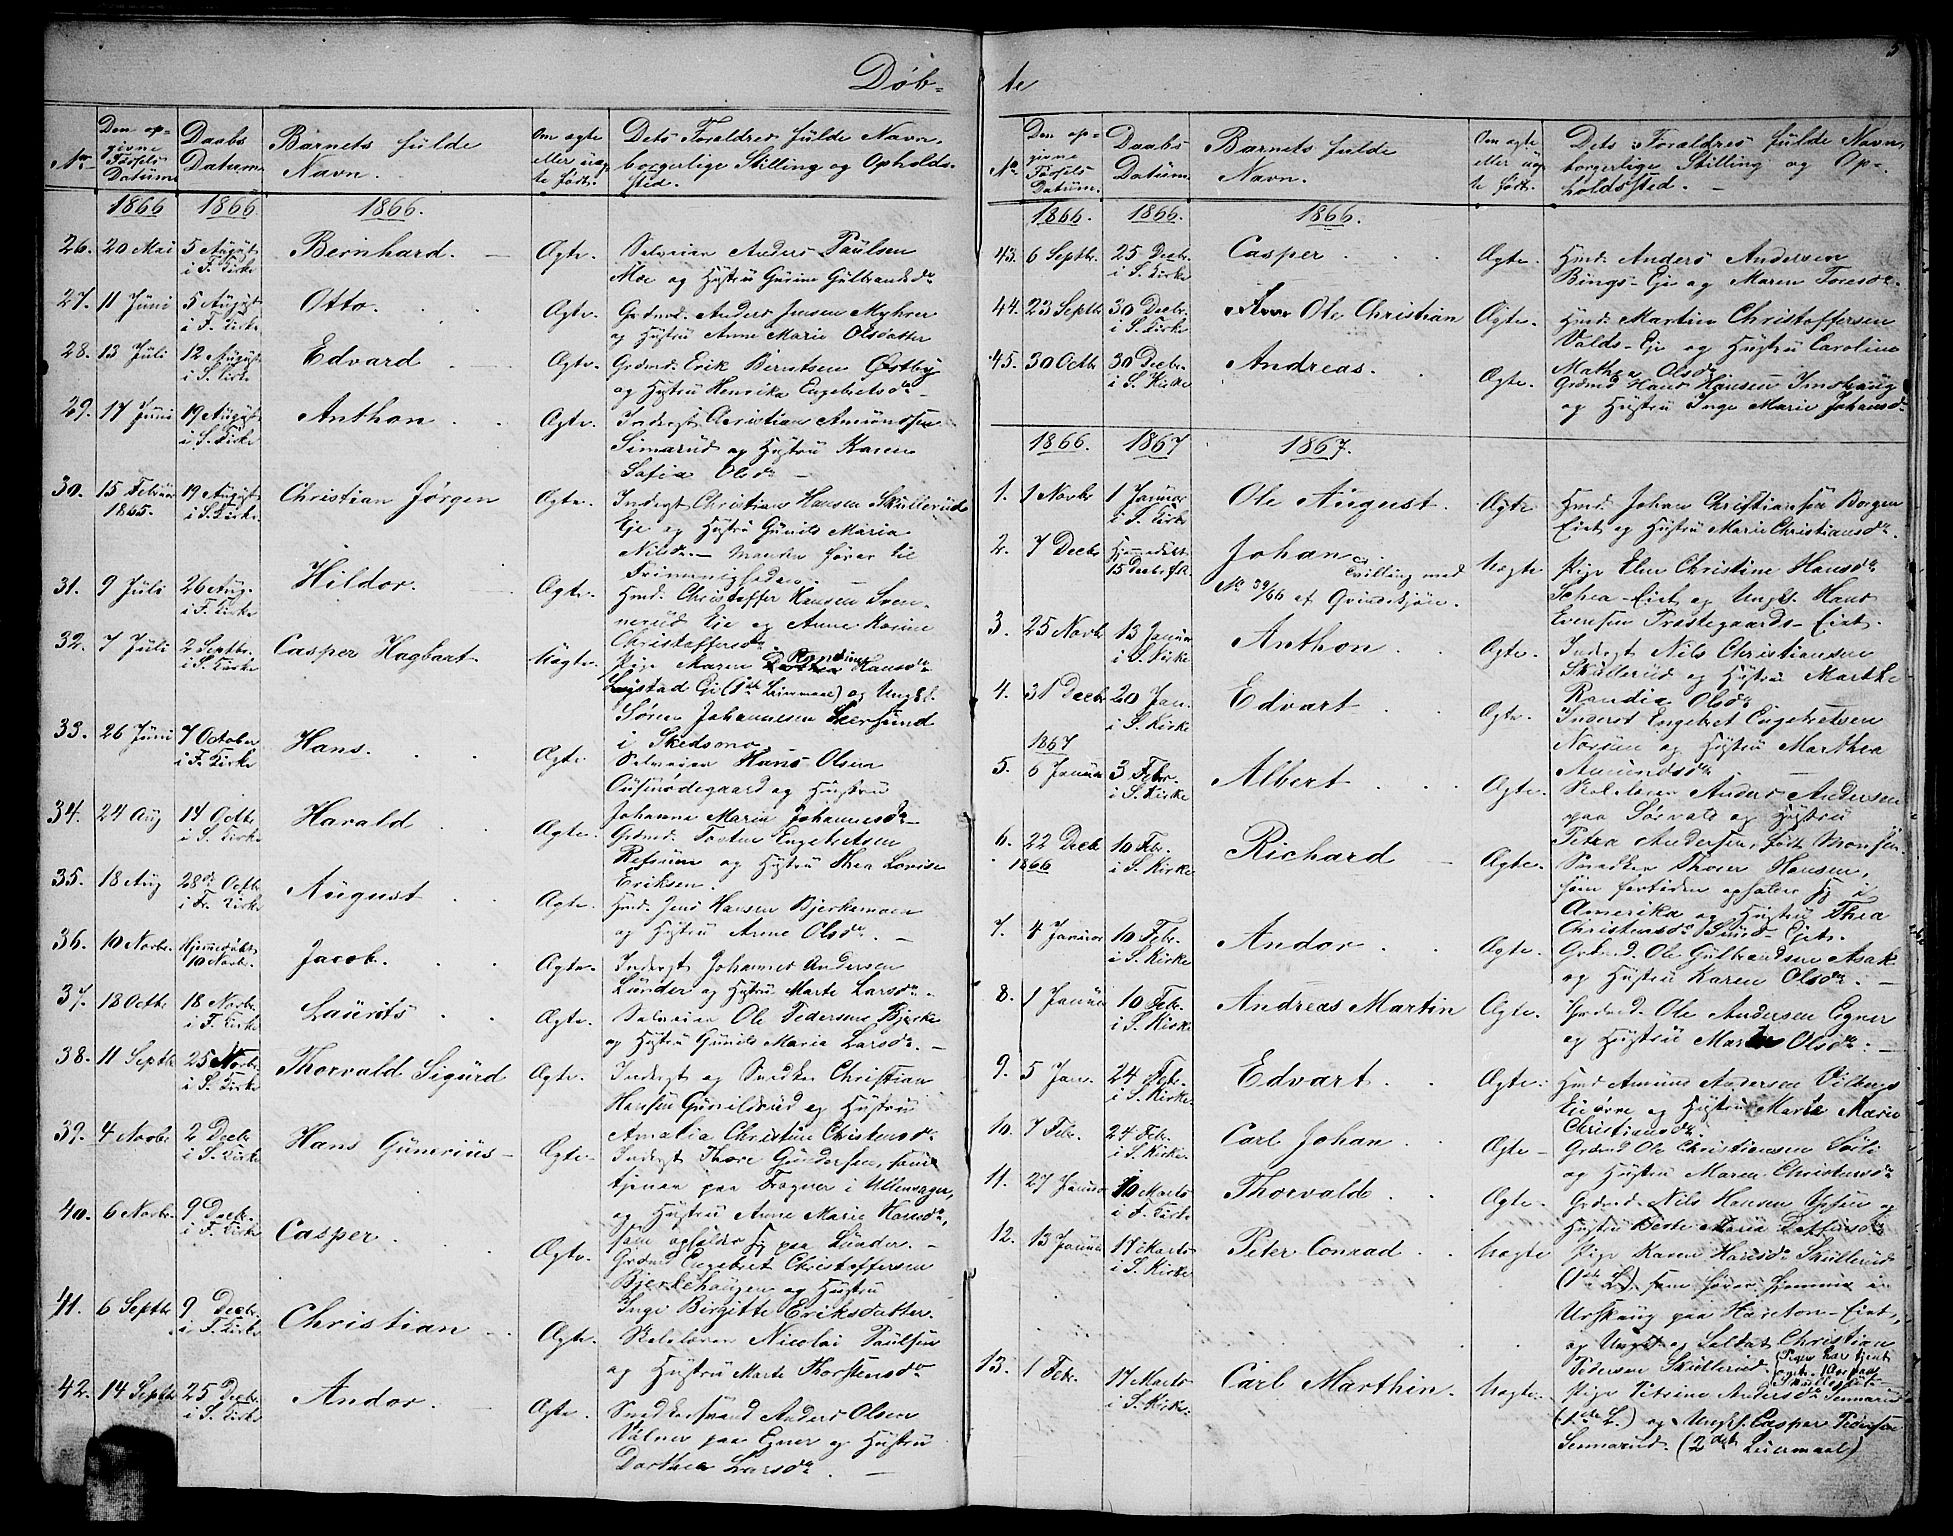 Døb-
No
Den op-
givne
Fødsels
Datum
Daabs
Datum
Barnets fulde
Navn.
Om ægte
eller uæg-
te født.
Dets Foraldres fulde Navn,
borgerlige Stilling og Opholds-
sted.
1866 1866 1866.
26. 20 Mai 5 August i F. Kirke Bernhard. Ægte. Selveier Anders Paulsen
Moe og Hustru Gurine Gulbrandsdr
27. 11 Juni 5 August i F. Kirke Otto. Ægte. Grdmd. Anders Jensen Myhrer
og Hustru Anne Marie Olsdatter
28. 13 Juli 12 August i S. Kirke Edvard Ægte. Grdmd. Erik Berntsen Østby
og Hustru Henrika Engebretsdr
29. 17 Juni 19 August i S. Kirke Anthon Ægte. Inderst Christian Amundsen
Simarud og Hustru Karen
Sofia Olsdr
30. 15 Februar 1865. 19 August i S. Kirke Christian Jørgen Ægte. Inderst Christian Hansen Skullerud
Eje og Hustru Gunild Maria
Nilsdr. - Manden hører til
Frimenigheden.
31. 9 Juli 26 Aug. i F. Kirke Hildor. Ægte. Hmd. Christoffer Hansen Sven-
nerud Eje og Anne Karine
Christoffersdr
32. 7 Juli 2 Septbr. i S. Kirke Casper Hagbart Uægte. Pige Maren Randine Hansdr
Eje (1ste Leiermaal) og Ungkl.
Søren Johannesen Leersund
i Skedsmo.
33. 26 Juni 7 October i F. Kirke Hans. Ægte. Selveier Hans Olsen
og Hustru
Johanne Maria Johannesdr
34. 24 Aug 14 Octbr i S. Kirke Harald Ægte. Grdmd. Torsten Engebretsen
Refsum og Hustru Thea Lovise
Eriksen.
35. 18 Aug 28de Octbr i Fr. Kirke August Ægte. Hmd. Jens Hansen Bjerkemoen
og Hustru Anne Olsdr.
36. 10 Novbr. Hjemmedøbt 10 Novbr. Jacob. Ægte. Inderst Johannes Andersen
Lunder og Hustru Marte Larsdr.
37. 18 Octbr 18 Novbr. i F. Kirke Laurits Ægte. Selveier Ole Pedersen Bjerke
og Hustru Gunild Maria Larsdr.
38. 11 Septbr 25 Novbr. i S. Kirke Thorvald Sigurd Ægte. Inderst og Snedker Christian
Hansen Gunildrud og Hustru
Amalia Christine Christensdr.
39. 4 Novbr 2 Decbr i S. Kirke Hans Gunerius Ægte. Inderst Thore Gundersen, som
tjener paa Frogner i Ullensager,
og Hustru Anne Marie Hansdr,
som opholder sig paa Lunder.
40. 6 Novbr. 9 Decbr. i F. Kirke Casper. Ægte. Grdmd Engebret Christoffersen
Bjerkehaugen og Hustru
Inge Birgitte Eriksdatter.
41. 6 Septbr 9 Decbr. i F. Kirke Christian Ægte. Skolelærer Nicolai Paulsen
og Hustru Marte Thorstensdr
42. 14 Septbr 25 Decbr. i S. Kirke Andor. Ægte. Snedkersvend Anders Olsen
Valner paa Egner og Hustru
Dorthea Larsdr.
te
5
No
Den op-
givne
Fødsels
Datum.
Daabs
Datum
Barnets fulde
Navn.
Om ægte
eller uæg-
te født.
Dets Foraldres fulde Navn,
borgerlige Stilling og Op-
holdssted.
1866. 1866. 1866.
43. 6 Septbr. 25 Decbr. i S. Kirke Casper Ægte. Hmd. Anders Andersen
Bings-Eje og Maren Toresdr.
44. 23 Septbr 30 Decbr. i S. Kirke Ole Christian Ægte. Hmd. Martin Christoffersen
Valds-Eje og Hustru Caroline
Mathea Olsdr
45. 30 Octbr 30 Decbr. i S. Kirke Andreas. Ægte. Grdmd Hans Hansen Imshaug
og Hustru Inge Marie Johansdr
1866. 1867 1867.
1. 1 Novbr 1 Januar i S. Kirke Ole August. Ægte Hmd. Johan Christiansen Borgen
Eiet og Hustru Marie Christiansdr.
2. 7 Decbr Hjemmedøbt 15 Decbr f.A. Johan Tvilling med
No 39/66 af Qvindekjøn. Uægte Pige Elen Christine Hansdr
-Eiet og Ungk. Hans
Evensen Prestegaards-Eiet.
3. 25 Novbr 13 Januar i S. Kirke Anthon Ægte. Inderst Nils Christiansen
Skullerud og Hustru Marthe
Randia Olsdr
4. 31 Decbr 20 Jan. i S. Kirke Edvart Ægte. Inderst Engebret Engebretsen
Norum og Hustru Marthea
Amundsdr
1867
5. 6 Januar 3 Febr. i S. Kirke Albert Ægte. Skolelærer Anders Andersen
paa Sørvald og Hustru
Petra Andersen, født Monsen.
6. 22 Decbr 1866 10 Febr. i S. Kirke Richard Ægte. Snedker Thoer Hansen,
som fortiden opholder sig i
Amerika og Hustru Thea
Christensdr -Eiet.
7. 4 Januar 10 Febr. i S. Kirke Andor Ægte. Grdmd. Ole Gulbrandsen Asak
og Hustru Karen Olsdr.
8. 1 Januar 10 Febr. i S. Kirke Andreas Martin Ægte. Grdmd. Ole Andersen Egner
og Hustru Olsdr.
9. 5 Jan. 24 Febr. i S. Kirke. Edvart. Ægte. Hmd Amund Andersen Vilbergs
Eie øvre og Hustru Marte Marie
Christiansdr.
10. 7 Febr. 24 Febr. i S. Kirke. Carl Johan Ægte Grdmd Ole Christiansen Søli
og Hustru Maren Christensdr
11. 27 Januar 10 Marts i F. Kirke Thorvald Ægte. Grdmd. Nils Hansen
Hustru Berte Maria
12. 13 Januar 17 Marts i S. Kirke Peter Conrad Uægte Pige Karen Hansdr Skullerud
(1ste L.) som hører hjemme i
Urskoug paa -Eiet,
og Ungk. og Soldat Christian
Pedersen Skullerud. (Pigen har tjent
Skullerud.)
13. 1 Febr. 17 Marts i S. Kirke. Carl Marthin. Uægte. Pige Petrine Andersdr Sennerud
(1ste L.) og Ungk. Casper Pedersen
Sennerud. (2det Leiermaal)